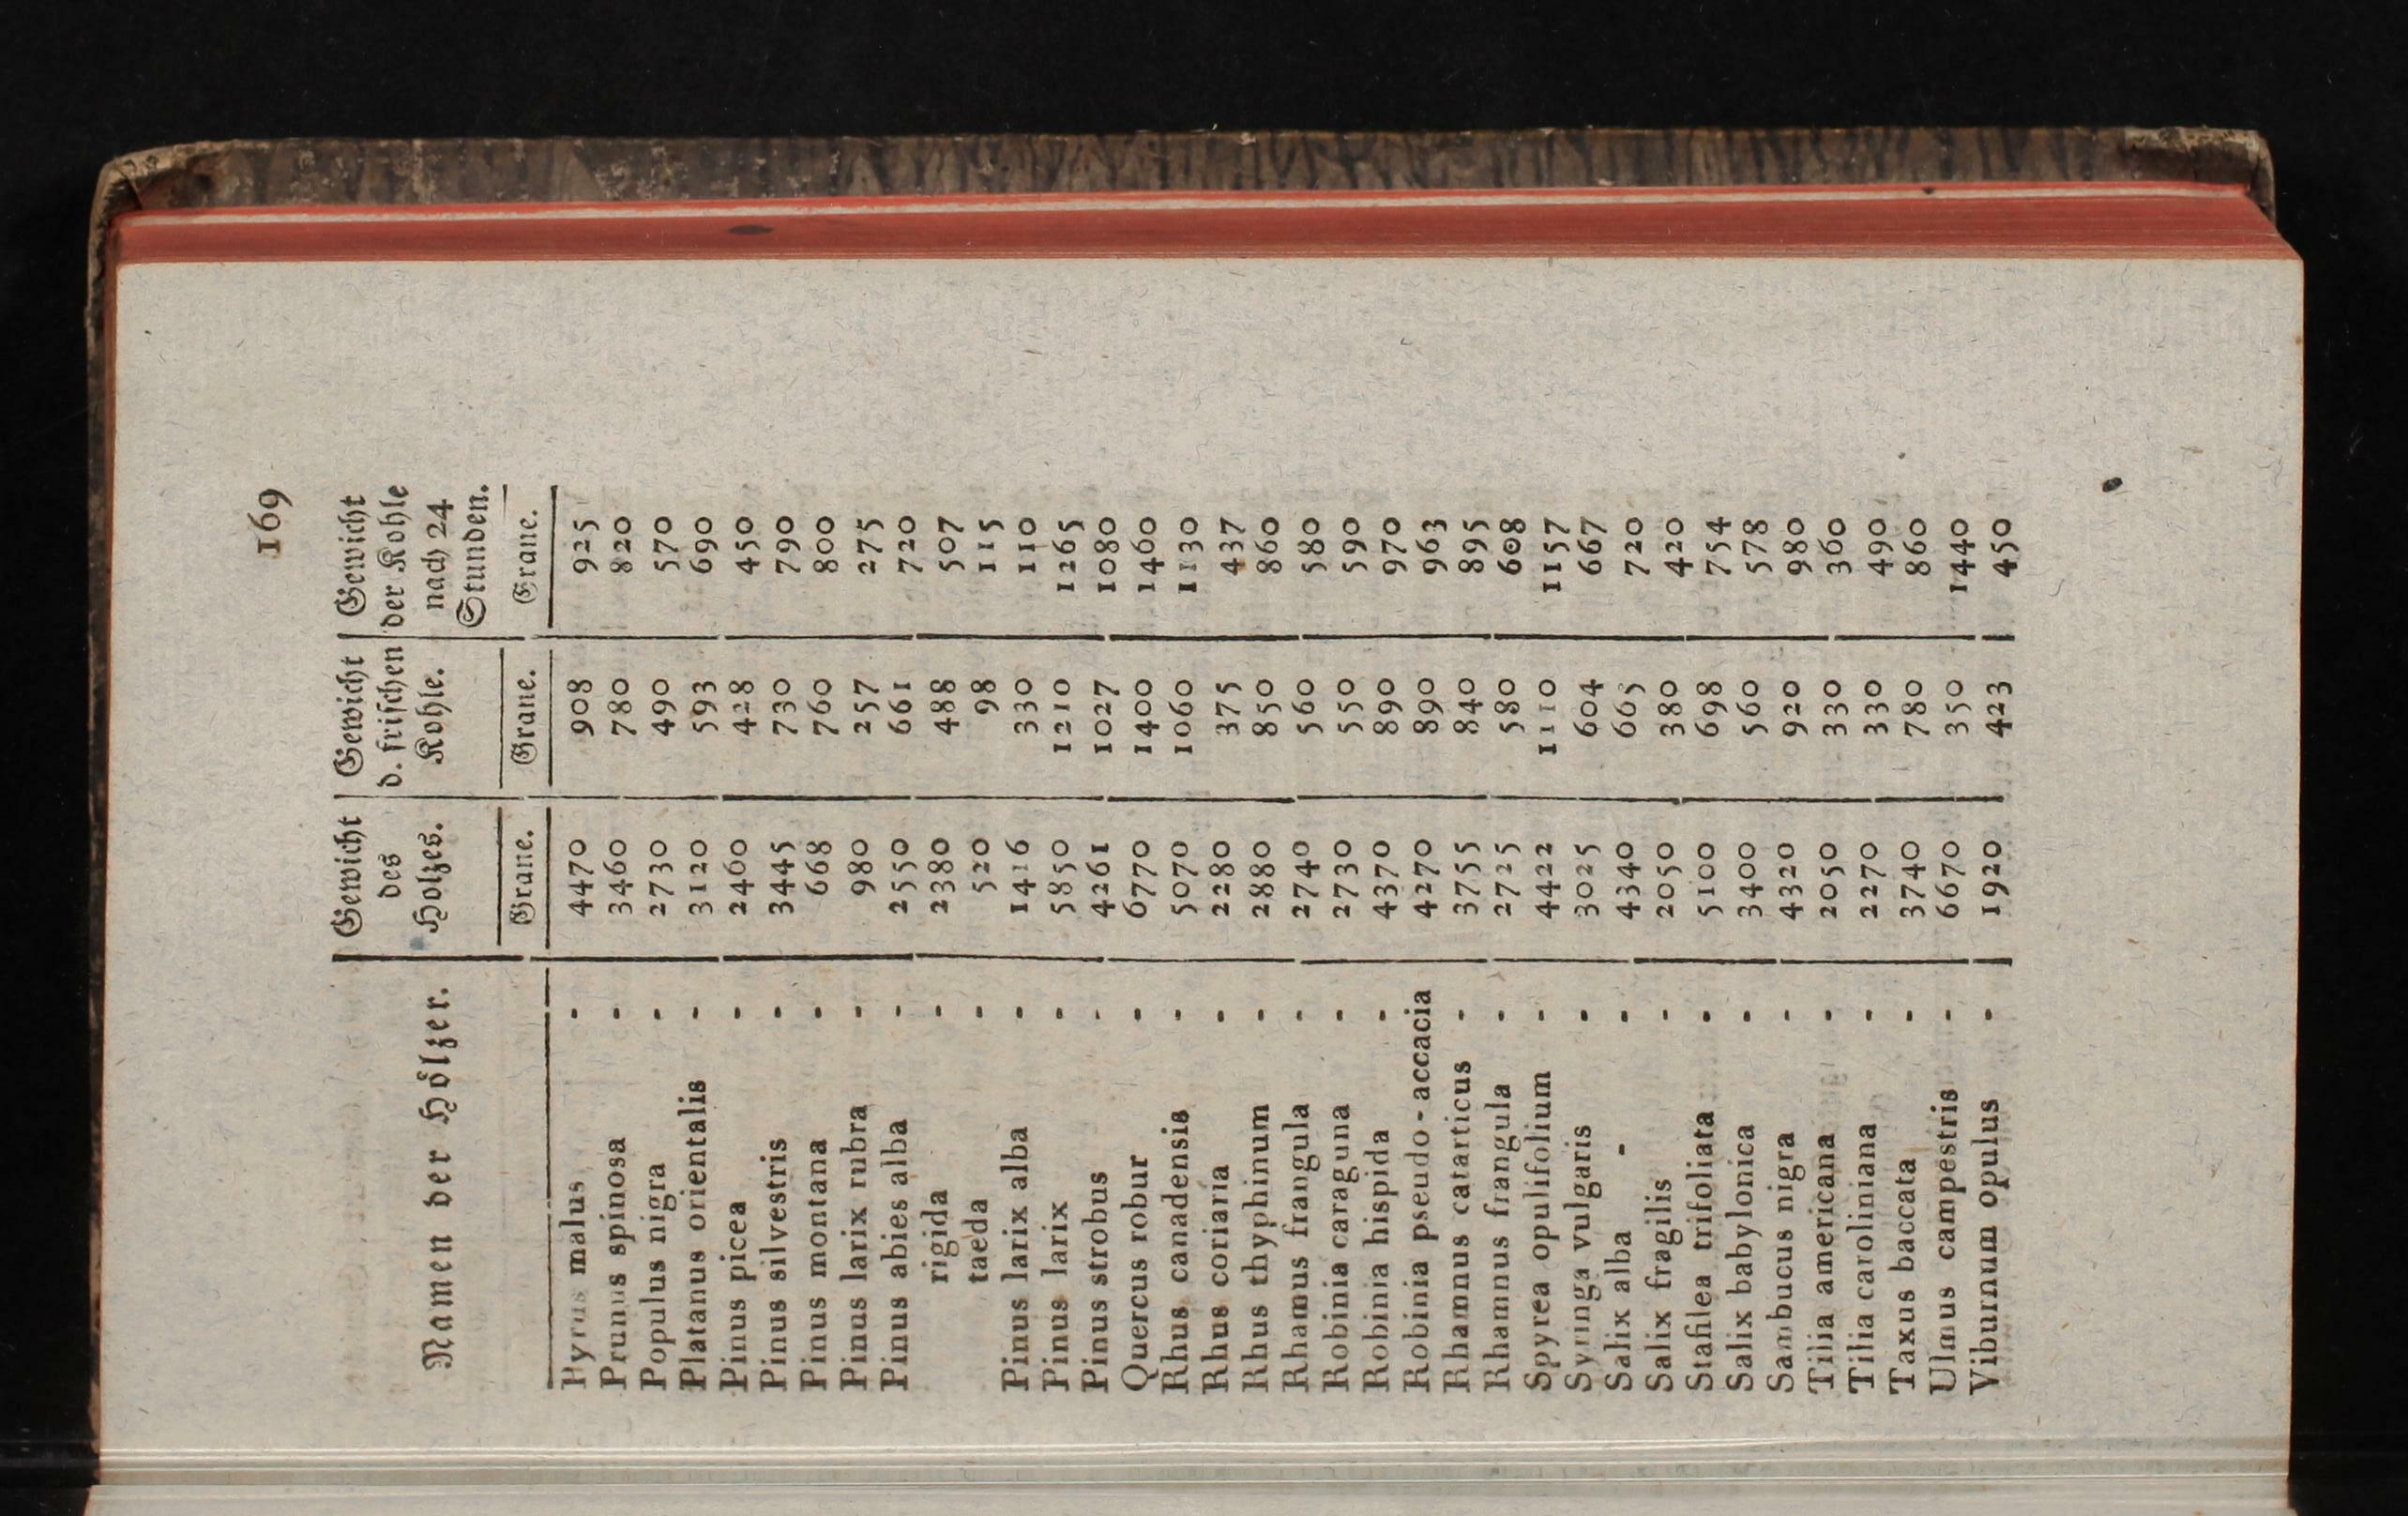 169
Namen der Hölzer. | Gewicht des Holzes. | Gewicht d. frischen Kohle. | Gewicht der Kohle nach 24 Stunden.
Grane. | Grane. | Grane.
Pyrus malus - 4470 908 925
Prunus spinosa - 3460 780 820
Populus nigra - 2730 490 570
Platanus orientalis - 3120 593 690
Pinus picea - 2460 428 450
Pinus silvestris - 3445 730 790
Pinus montana - 668 760 800
Pinus larix rubra - 980 257 275
Pinus abies alba - 2550 661 720
rigida - 2380 488 507
taeda - 520 98 115
Pinus larix alba - 1416 330 110
Pinus larix - 5850 1210 1265
Pinus strobus - 4261 1027 1080
Quercus robur - 6770 1400 1460
Rhus canadensis - 5070 1060 1130
Rhus coriaria - 2280 375 437
Rhus thyphinum - 2880 850 860
Rhamus frangula - 2740 560 580
Robinia caraguna - 2730 550 590
Robinia hispida - 4370 890 970
Robinia pseudo-accacia 4270 890 963
Rhamnus catarticus - 3755 840 895
Rhamnus frangula - 2725 580 608
Spyrea opulifolium - 4422 1110 1157
Syringa vulgaris - 3025 604 667
Salix alba - - 4340 665 720
Salix fragilis - 2050 380 420
Stafilea trifoliata - 5100 698 754
Salix babylonica - 3400 560 578
Sambucus nigra - 4320 920 980
Tilia americana - 2050 330 360
Tilia caroliniana - 2270 330 490
Taxus baccata - 3740 780 860
Ulmus campestris - 6670 350 1440
Viburnum opulus - 1920 423 450